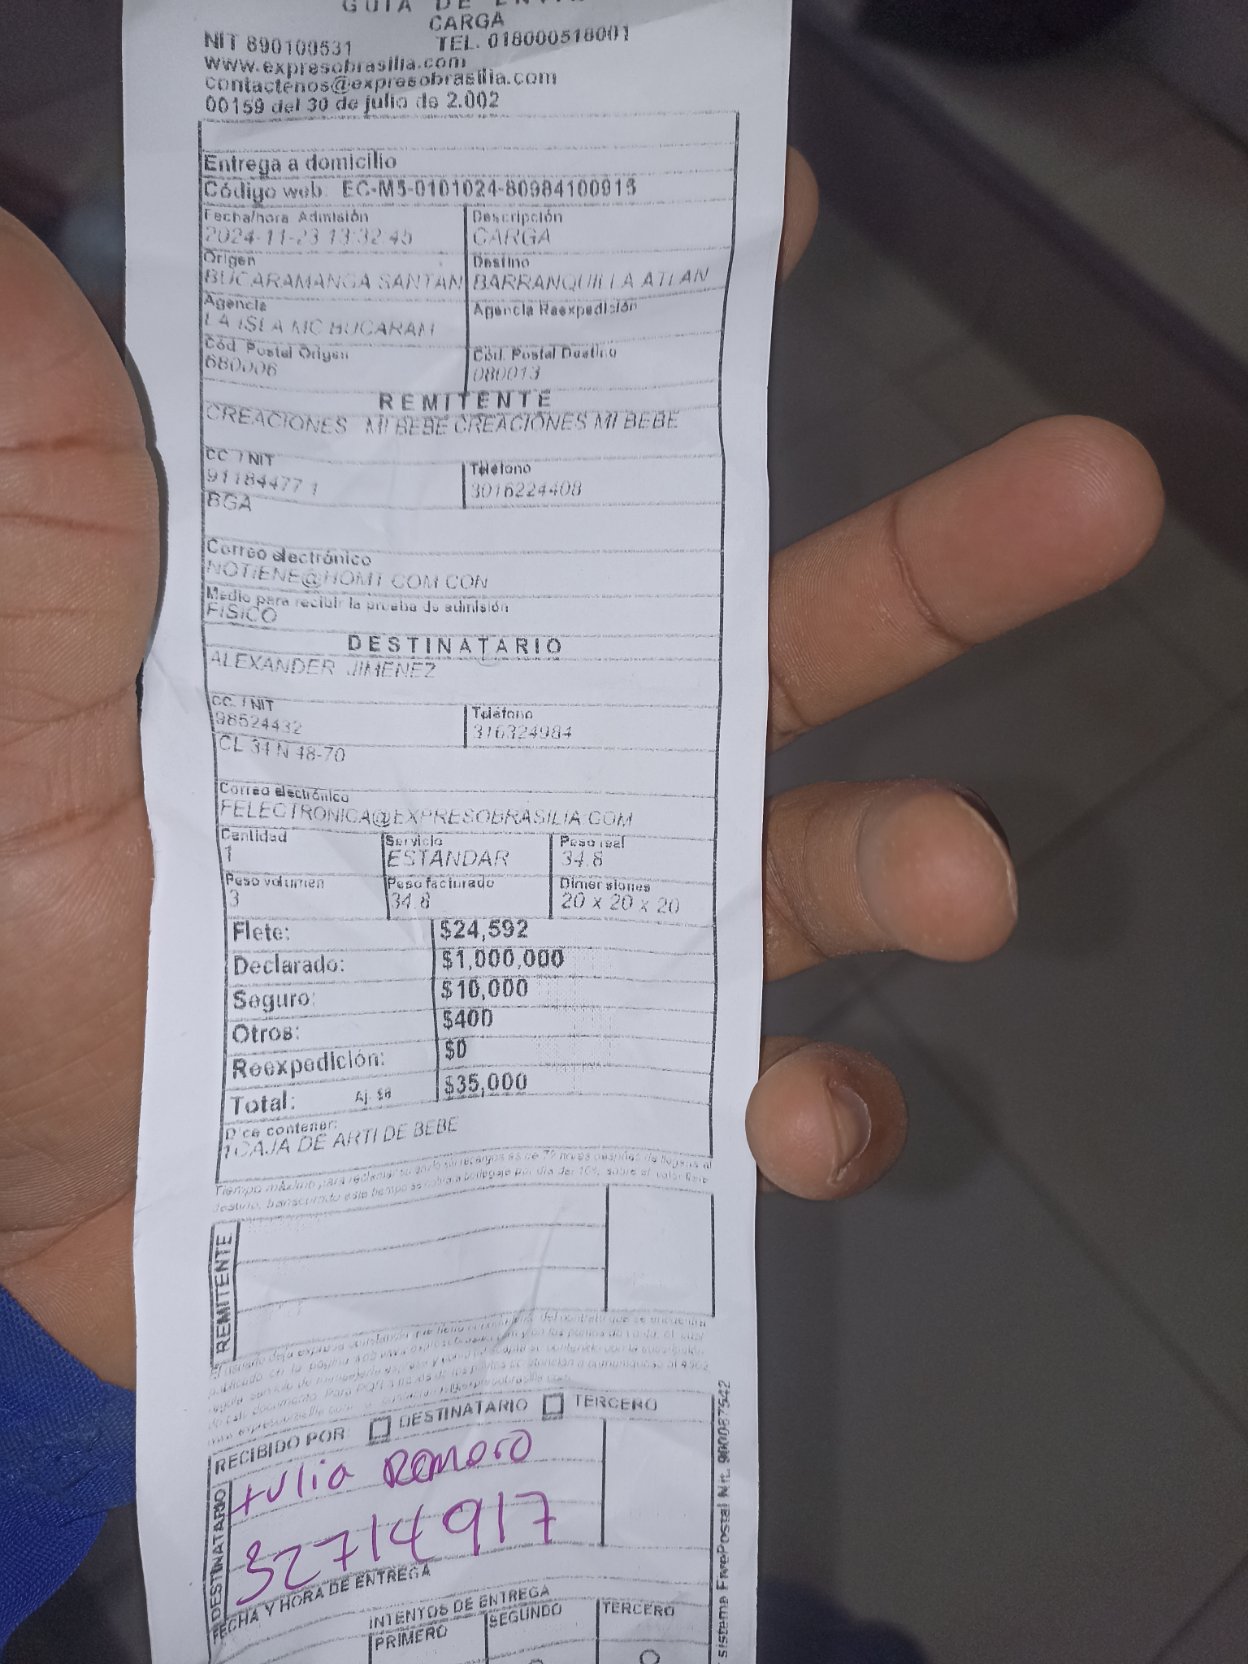 GUIA DE
CARGA
NIT 890100531 TEL. 018000518001
www.expresobrasilia.com
contactenos@expresobrasilia.com
00159 del 30 de julio de 2.002
Entrega a domicilio
Código web: EC-M5-0101024-80984100915
Fecha/hora Admisión Descripción
2024-11-23 13:32:45 CARGA
Origen Destino
BUCARAMANGA SANTAN BARRANQUILLA ATLAN
Agencia Agencia Reexpedición
LA ISLA MC BUCARAM
Cód. Postal Origen Cód. Postal Destino
680006 080013
REMITENTE
CREACIONES MI BEBE CREACIONES MI BEBE
CC / NIT Teléfono
91184477 1 3016224408
BGA
Correo electrónico
NOTIENE@HOMT.COM.CON
Medio para recibir la prueba de admisión
FISICO
DESTINATARIO
ALEXANDER JIMENEZ
CC. / NIT Teléfono
98524432 316324984
CL 34 N 48-70
Correo electrónico
FELECTRONICA@EXPRESOBRASILIA.COM
Cantidad Servicio Peso real
1 ESTANDAR 34.8
Peso volumen Peso facturado Dimensiones
3 34.8 20 x 20 x 20
Flete: $24,592
Declarado: $1,000,000
Seguro: $10,000
Otros: $400
Reexpedición: $0
Total: Aj. $8 $35,000
Dice contener:
1 CAJA DE ARTI DE BEBE
REMITENTE
RECIBIDO POR: DESTINATARIO TERCERO
DESTINATARIO
Julia Romero
32714917
FECHA Y HORA DE ENTREGA
INTENTOS DE ENTREGA
PRIMERO SEGUNDO TERCERO
sistema FivePostal Nit. 900087542